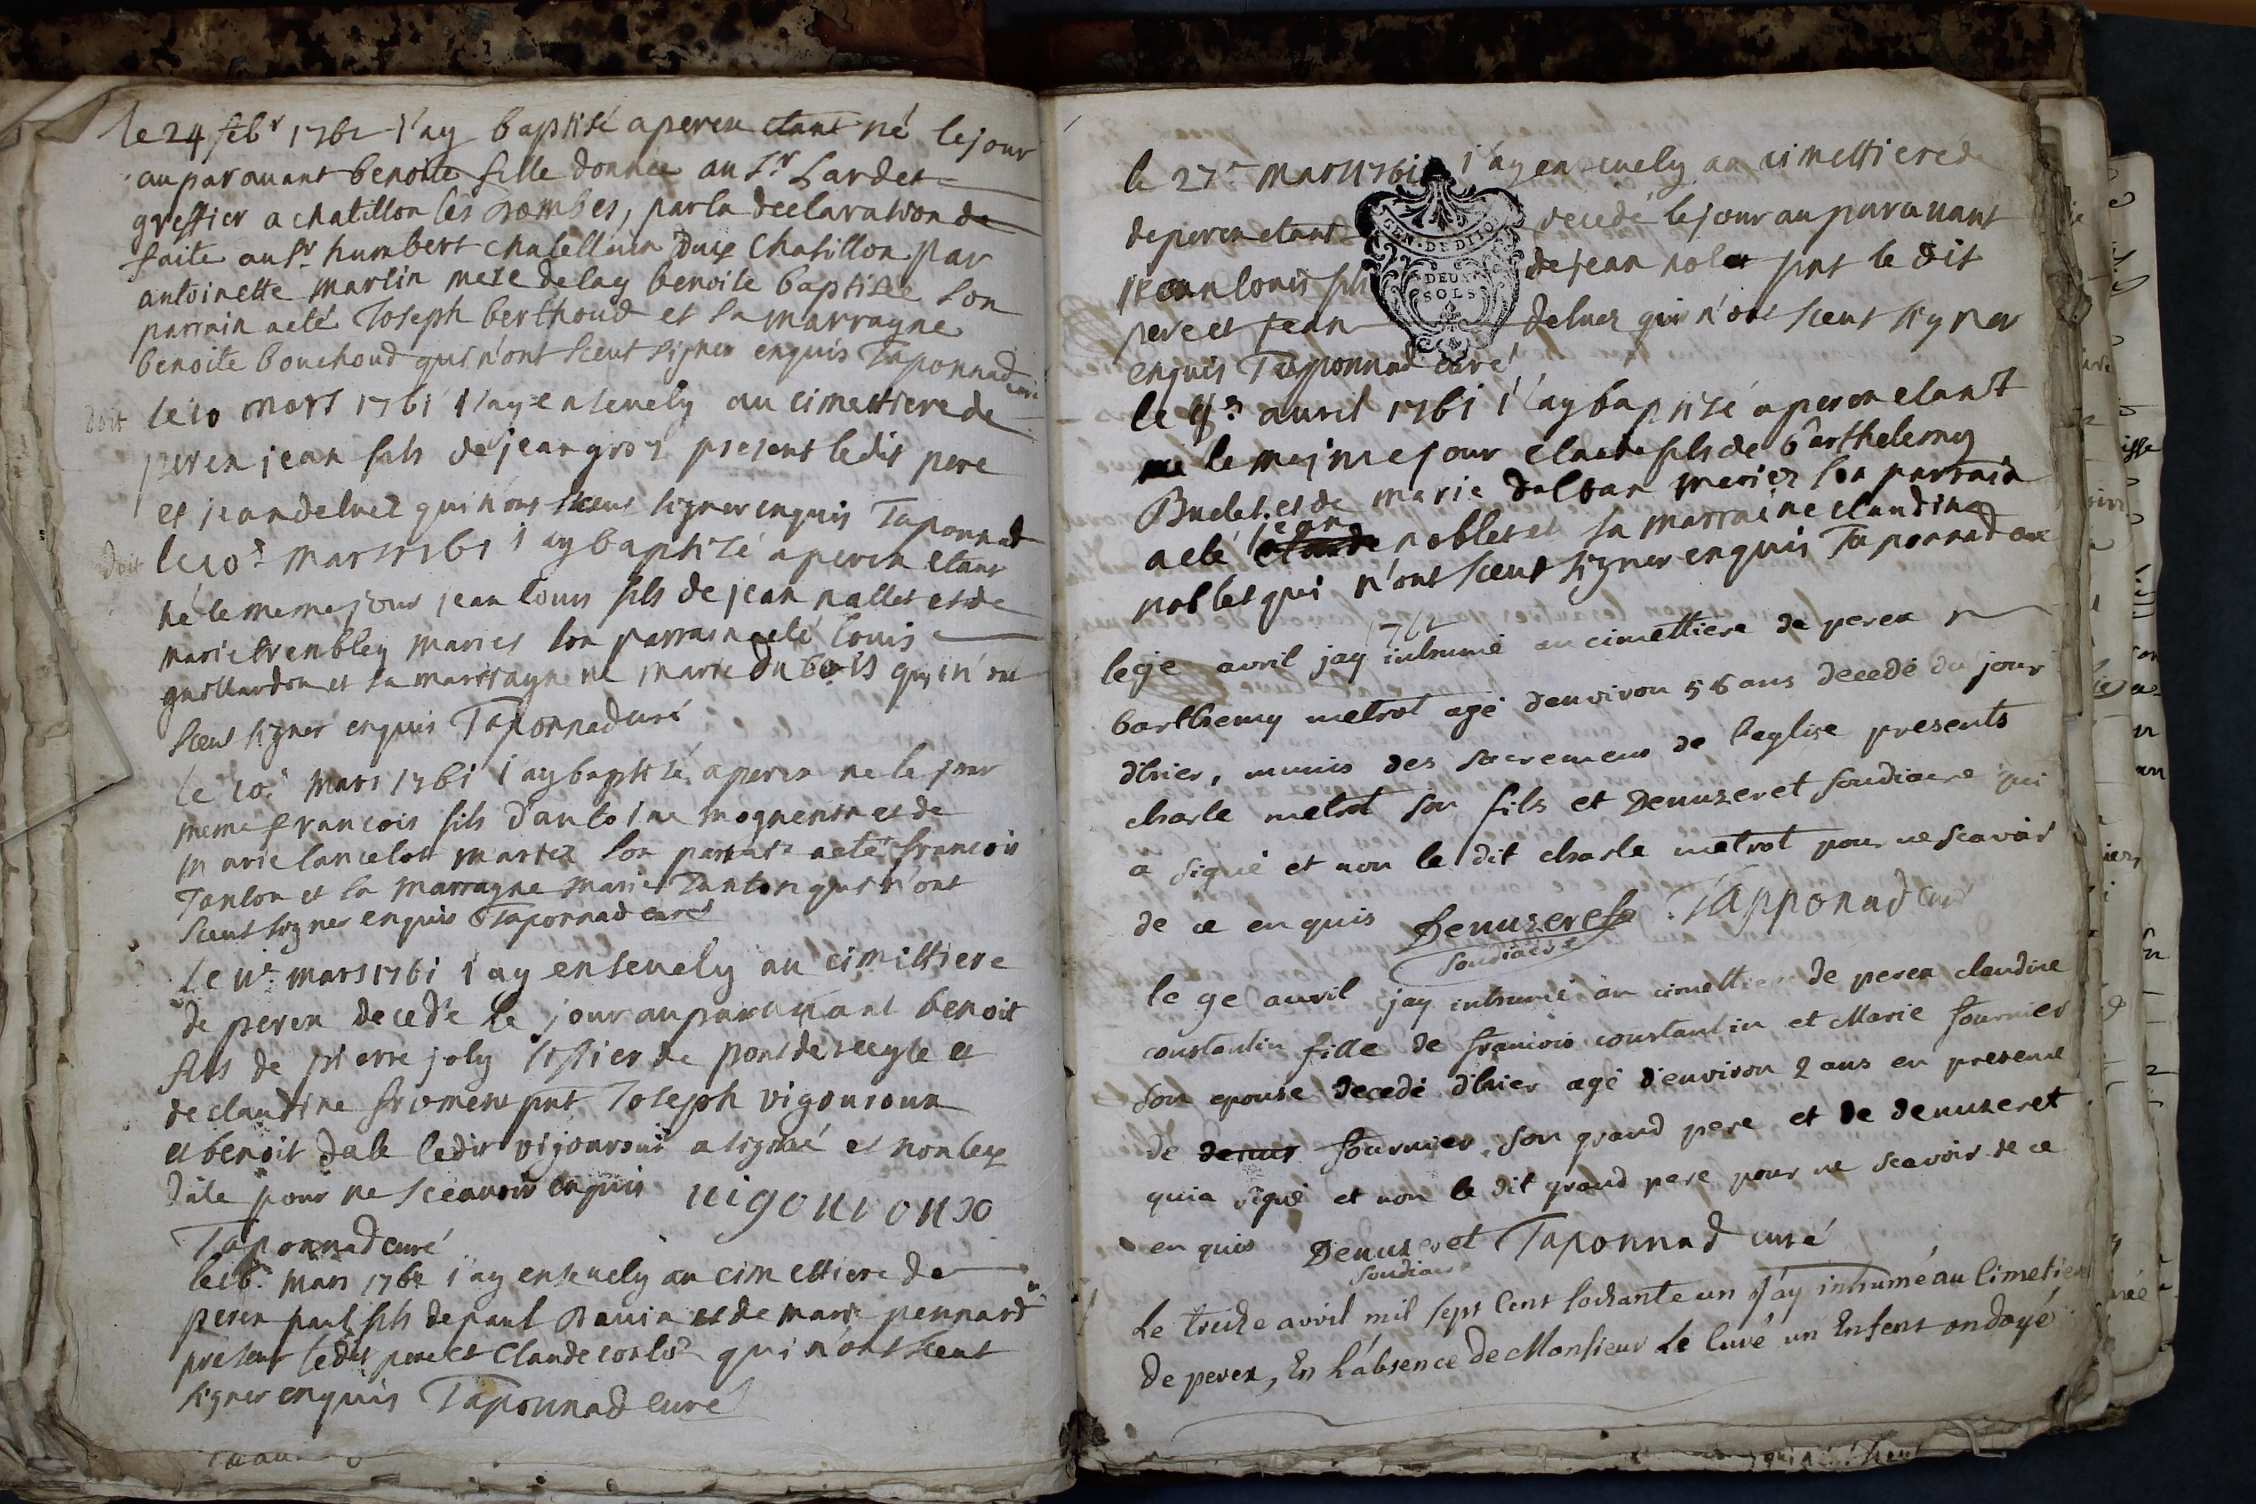 le 24 febr 1761 i'ay baptisé a perex etant né le jour
auparauant benoite fille donnée au Sr Lardet
greffier a chatillon les Dombes, par la declaration de
faite au Sr humbert chatellain dud Chatillon par
antoinette martin mere de lad benoite baptisée son
parrain a eté Joseph berthoud et sa marrayne
benoite bouchoud qui n'ont sceut signer enquis Taponnad curé
doit le 10 mars 1761 i'ay ensevely au cimettiere de
perex jean fils de jean gros present ledit pere
et jean deluez qui n'ont sceut signer enquis Taponnad
doit le 10e mars 1761 i'ay baptizé a perex etant
né le meme jour jean louis fils de jean nallet et de
marie trembley maries son parrain a eté louis
guillardon et sa marrayne marie du bois qui n'ont
sceut signer enquis Taponnad curé
le 10e mars 1761 i'ay baptisé a perex ne le jour
meme francois fils d'antoine moquentn et de
marie lancelot mariez son parrain a eté francois
Tanton et sa marrayne marie Tanton qui n'ont
sceut signer enquis Taponnad curé
Le 11e mars 1761 i'ay ensevely au cimittiere
de perex decedé le jour auparauant benoit
fils de pierre joly de pont de vecyle et
de claudine froment pnt Joseph vigouroux
et benoit dale ledit vigouroux a signé et non led
dale pour ne sceauoir enquis vigouroux
Taponnad curé
le 16e mars 1761 i'ay ensevely au cimettiere de
perex paul fils de paul Rauix et de marie pennard
present ledit pere et Claude qui n'ont sceut
signer enquis Taponnad curé
le 27e mars 1761 i'ay ensevely au cimettiere de
de perex etant decedé le jour auparauant
jean louis fils de jean pnt le dit
pere et jean deluez qui n'ont sceut signer
GEN. DE DIJON
DEUX
SOLS
enquis Taponnad curé
le avril 1761 i'ay baptizé a perex etant
né le mesme jour claude fils de barthelemy
Budet et de marie mariez son parrain
a eté jean noblet et sa marraine claudine
noblet qui n'ont sceut signer enquis Taponnad curé
1761
le 9e avril jay inhumé au cimettiere de perex
barthemy metrot agé denviron 56 ans decedé du jour
d'hier, munis des sacremens de l'eglise presents
charle metrot son fils et Denuzeret soudiacre qui
a signé et non le dit charle metrot pour ne scavoir
de ce enquis Denuzeret Tapponad curé
soudiacre
le 9e avril jay inhumé au cimettiere de perex claudine
constantin fille de francois constantin et Marie fournier
son epouse decedé d'hier agé d'environ 2 ans en presence
de denus fournier son grand pere et de denuzeret
qui a signé et non le dit grand pere pour ne scavoir de ce
enquis Denuzeret Taponnad curé
soudiacre
Le treize avril mil sept Cent soixante un J'ay inhumé au Cimetiere
de perex, En L'absence de Monsieur Le Curé un Enfent ondoyé